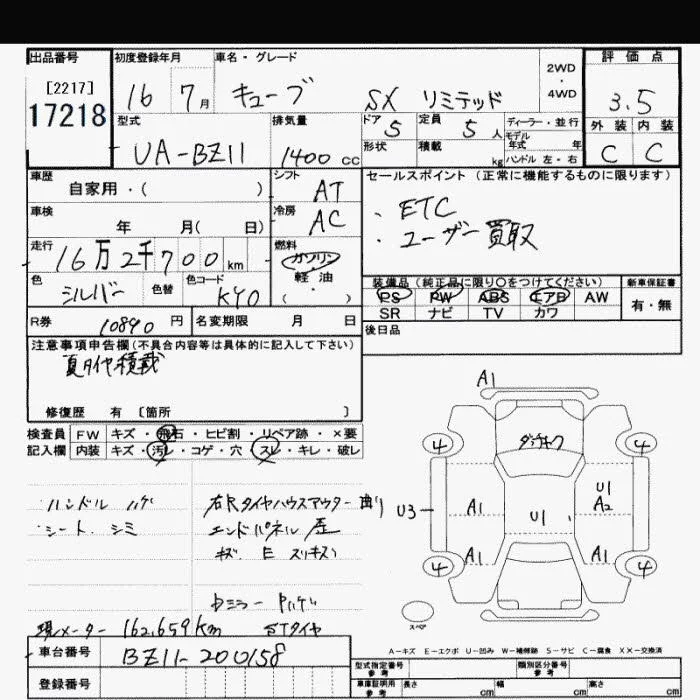 出品番号
[2217]
17218
初度登録年月
16 7月
車名・グレード
キューブ SX リミテッド
2WD
・
4WD
評価点
3.5
外装 内装
C C
型式
UA-BZ11
排気量
1400 cc
ドア 5
定員 5人
ディーラー・並行
モデル年式 年
形状
積載 kg
ハンドル 左・右
車歴
自家用・( )
シフト
AT
セールスポイント (正常に機能するものに限ります)
・ETC
・ユーザー買取
車検
年 月( 日)
冷房
AC
走行
16万2千700km
燃料
ガソリン
軽油
( ・ )
色
シルバー
色替
色コード
KY0
装備品 (純正品に限り○をつけてください)
PS PW ABS エアB AW
SR ナビ TV カワ
新車保証書
有・無
R券 10890円
名変期限 月 日
後日品
注意事項申告欄(不具合内容等は具体的に記入して下さい)
夏タイヤ積載
修復歴 有 [箇所 ]
検査員 FW キズ・飛石・ヒビ割・リペア跡・×要
記入欄 内装 キズ・汚レ・コゲ・穴・スレ・キレ・破レ
ハンドル ハゲ
シート シミ
右Rタイヤハウスアウター曲り
エンドパネル 歪
キズ E スリキズ
現メーター 162,659km STタイヤ
A1
4 4
U3 A1 U1 U1 A2
A1 A1
4 4
スペア
A-キズ E-エクボ U-凹み W-補修跡 S-サビ C-腐食 XX-交換済
車台番号 BZ11-200158
登録番号
型式指定番号 参考
類別区分番号 参考
車庫証明用 参考 長さ cm 幅 cm 高さ cm